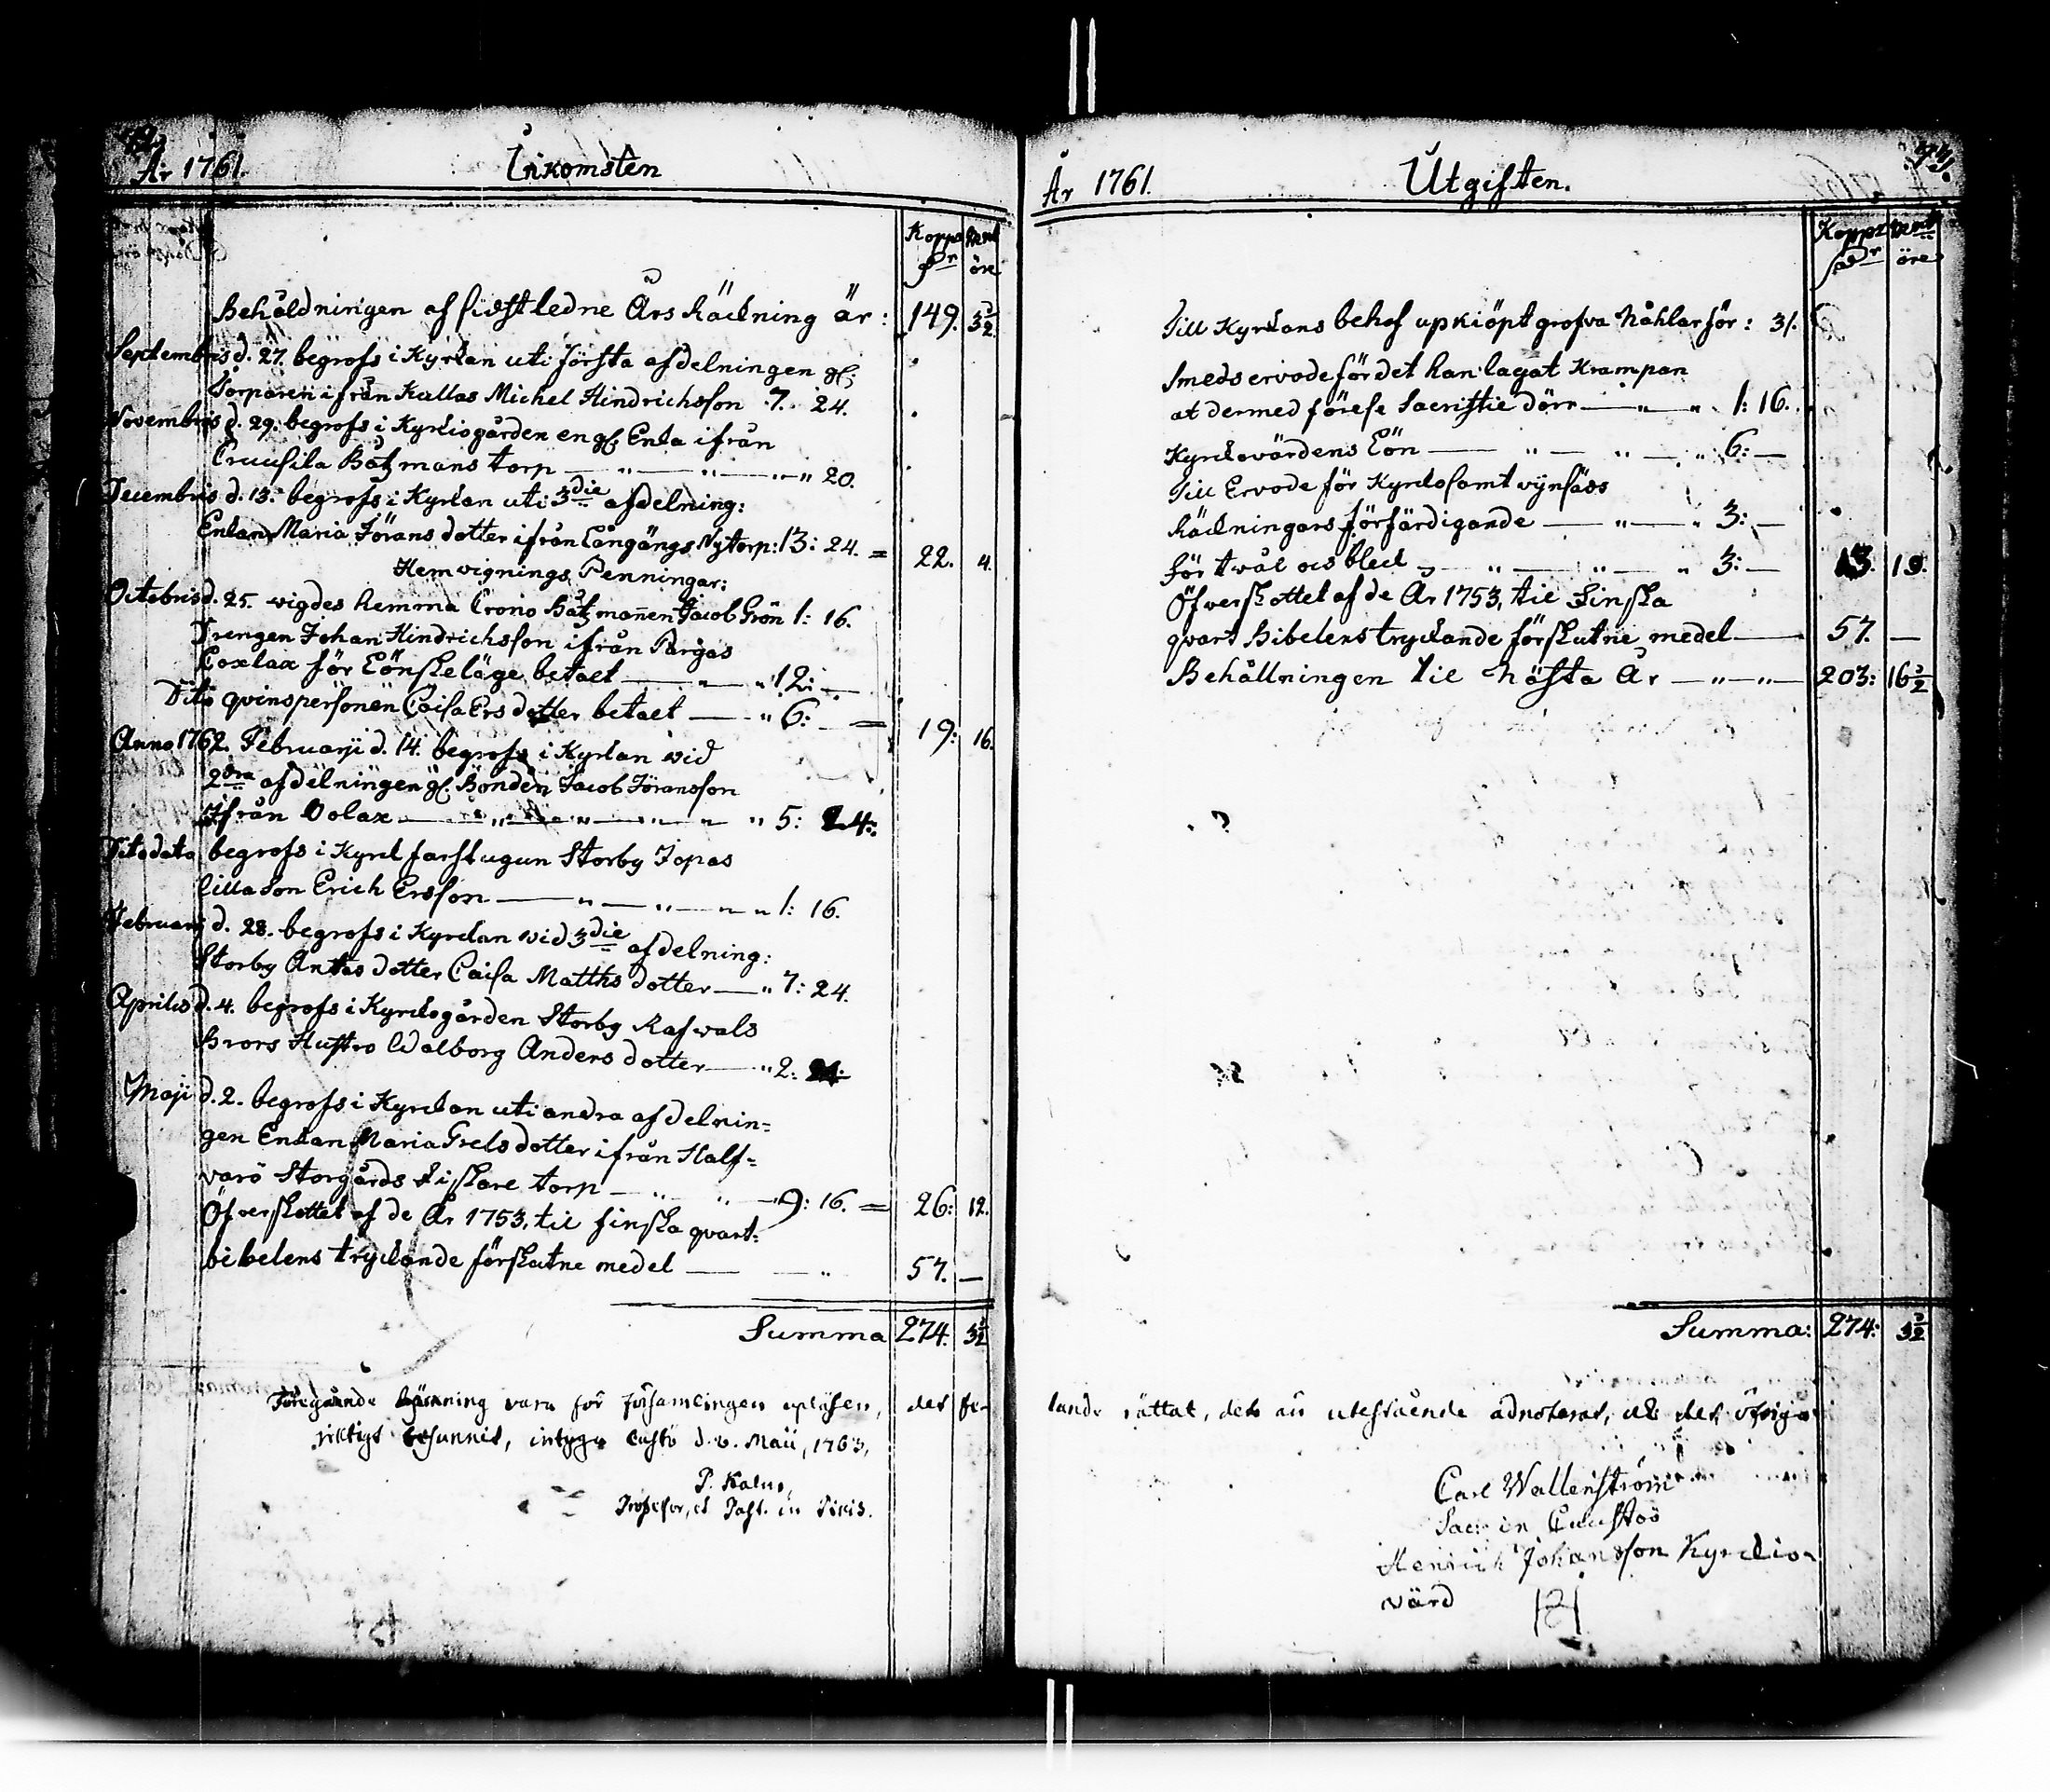 År 1761. Inkomsten
Kopp Dr Sm öre
Behåldningen af sidstledne Års Räckning är: 149. 3 3/2
Septembris d. 27. begrofs i Kyrkan uti första afdelningen gl:
Torparen ifrån Kullas Michel Hindrichsson 7. 24.
Novembris d. 29. begrofs i Kyrkiogården en gl. Enka ifrån
Cruusila Båtzmans torp 20.
Decembris d. 13. begrofs i Kyrkan uti 3die afdelning:
Enkan Maria Jörans dotter ifrån Långängs Nytorp: 13: 24. = 22. 4.
Hemvignings Penningar:
Octobris d. 25. vigdes hemma Crono Båtzmanen Jacob Grön 1: 16.
Drengen Johan Hindrichsson ifrån Pargas
Coxlax för Lönskeläge betalt 12: —
Dito qvinspersonen Caisa Ers dotter betalt 6: — = 19: 16.
Anno 1762. Februarji d. 14. begrofs i Kyrkan wid
2dra afdelningen gl. Bonden Jacob Jöransson
Ifrån Oolax 5: 24:
Dito dato begrofs i Kyrk farstugun Storby Jopas
lilla Son Erich Ersson 1: 16.
Februarij d. 28. begrofs i Kyrckan wid 3die afdelning:
Storby Antas dotter Caisa Matths dotter 7: 24.
Aprilis d. 4. begrofs i Kyrckogården Storby Rafwals
Brors Hustro Walborg Anders dotter 2:
Maji d. 2. begrofs i Kyrckan uti andra afdelnin=
gen Enkan Maria Grels dotter ifrån Half=
varö Storgårds fiskare torp 9: 16. = 26: 12.
Öfverskottet af de År 1753, til finska qvart=
bibelens tryckande förskutne medel 57. —
Summa 274. 3 3/2
Föregående räkning vara för församlingen upläsen,
riktigt befunnit, intyga Custö d. 2. Maii, 1763,
P. Kalm,
Professor, et Past. in Pikis.
År 1761. Utgiften. 73.
Kopp Dr Sm öre
Till Kyrkans behof upkiöpt grofva Nåhlar för: 31.
Smeds ervode för det han lagat Krampan
at dermed förese Sacristie dörr 1: 16.
Kyrckovärdens Lön 6: —
Till Ervode för Kyrcko samt vijnsäds
Räckningars förfärdigande 3: —
för tvål och bleck 3: — 13. 19.
Öfverskottet af de År 1753, til Finska
qvart Bibelens tryckande förskutne medel 57. —
Behållningen til Nästa År 203: 16 3/2
Summa: 274: 3 3/2
det fe- lande rättat, det än utestående adnoterat, och det öfriga
Carl Wallenström
Sac: in Cuustoö
Henrich Johansson Kyrckio-
värd